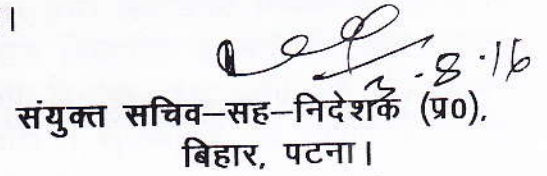 ।
3.8.16
संयुक्त सचिव–सह–निदेशक (प्र०),
बिहार, पटना।